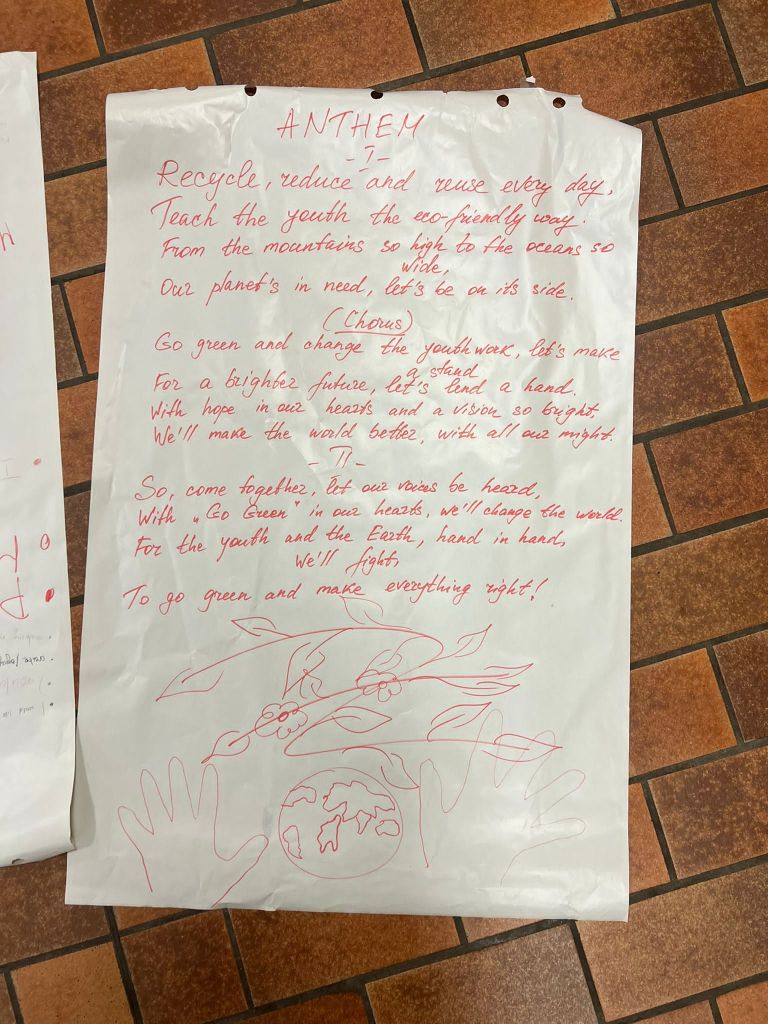 ANTHEM
-I-
Recycle, reduce and reuse every day,
Teach the youth the eco-friendly way.
From the mountains so high to the oceans so
wide,
Our planet's in need, let's be on its side.
(Chorus)
Go green and change the youth work, let's make
a stand
For a brighter future, let's lend a hand.
With hope in our hearts and a vision so bright,
We'll make the world better, with all our might.
-II-
So, come together, let our voices be heard,
With „Go Green" in our hearts, we'll change the world.
For the youth and the Earth, hand in hand,
we'll fight,
To go green and make everything right!